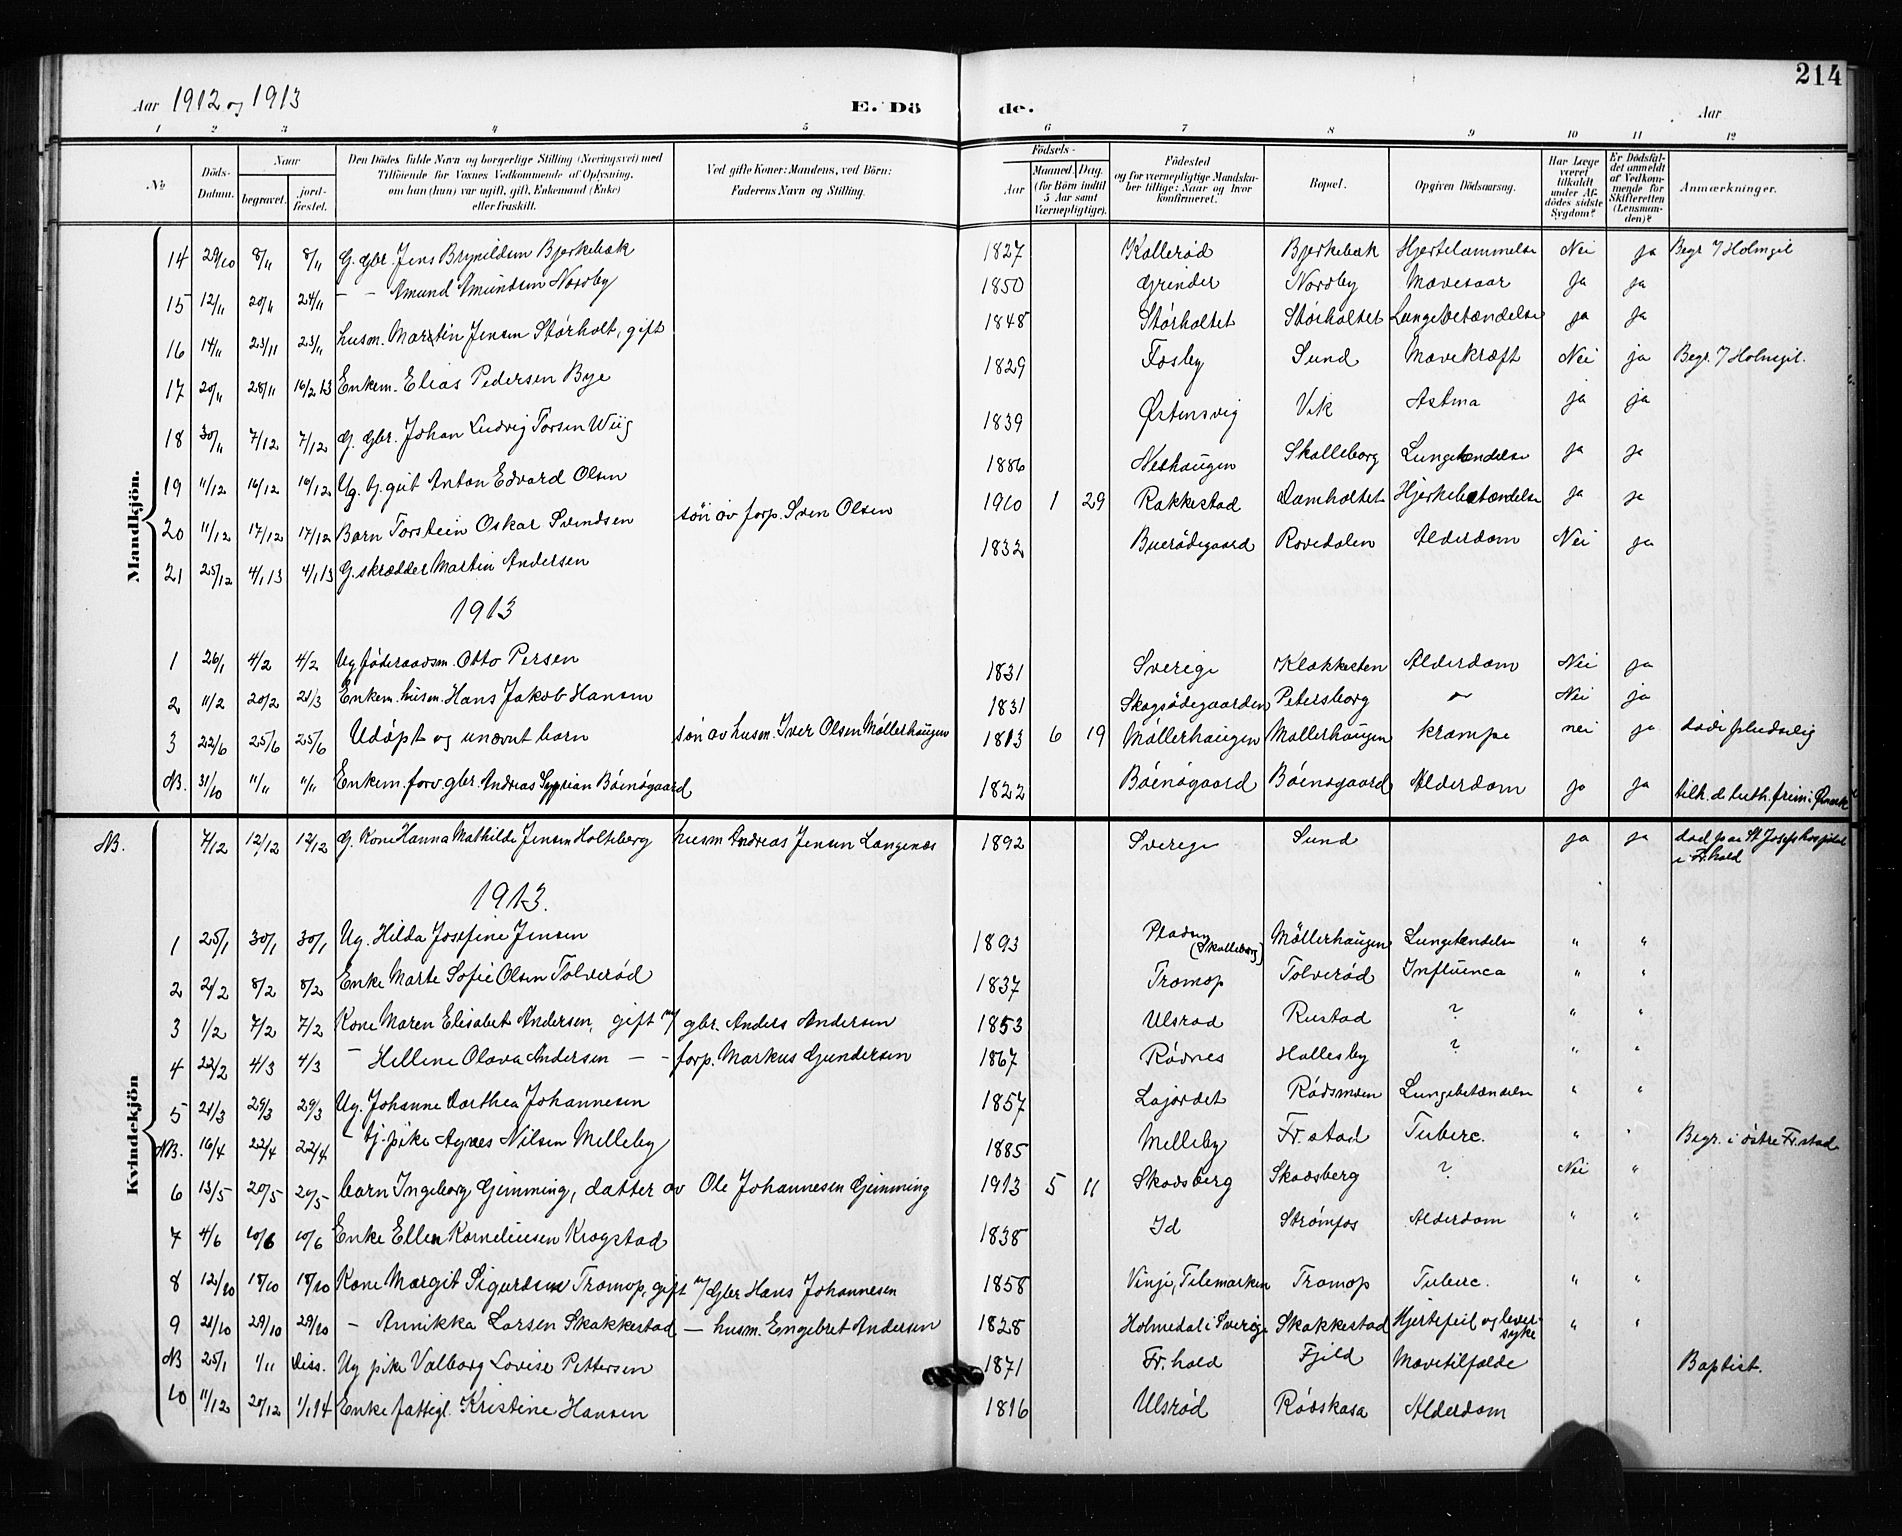 214
Aar 1912 og 1913 E. Dö de. Aar
1 2 3 4 5 6 7 8 9 10 11 12
№ Döds-Datum. Naar begravet. jord-fæstet. Den Dödes fulde Navn og borgerlige Stilling (Næringsvei) med Tilföiende for Voxnes Vedkommende af Oplysning, om han (hun) var ugift, gift, Enkemand (Enke) eller fraskilt. Ved gifte Koner: Mandens, ved Börn: Faderens Navn og Stilling. Födsels- Aar Maaned. Dag. (for Börn indtil 5 Aar samt Værnepligtige). Födested og for værnepligtige Mandskaber tillige: Naar og hvor konfirmeret. Bopæl. Opgiven Dödsaarsag. Har Læge været tilkaldt under Afdödes sidste Sygdom? Er Dödsfaldet anmeldt af Vedkommende for Skifteretten (Lensmanden)? Anmærkninger.
Mandkjön.
14 29/10 8/11 8/11 G. gbr. Jens Brynildsen Bjerkebæk 1827 Kallerød Bjerkebæk Hjertelammelse Nei ja Begr. i Holmgil
15 12/11 20/11 24/11 — — Amund Amundsen Nordby 1850 Grinder Nordby Mavesaar ja ja
16 14/11 23/11 23/11 husm. Martin Jensen Störholt, gift 1848 Störholtet Störholtet Lungebetændelse ja ja
17 20/11 28/11 16/2 13 Enkem. Elias Pedersen Bye 1829 Fosby Sund Mavekræft Nei ja Begr. i Holmgil.
18 30/11 7/12 7/12 G. gbr. Johan Ludvig Torsen Wiig 1839 Østensvig Vik Astma ja ja
19 11/12 16/12 16/12 Ug. Tj. gut Anton Edvard Olsen 1886 Neshaugen Skolleborg Lungetændelse ja ja
20 11/12 17/12 17/12 Barn Torstein Oskar Svendsen søn av forp. Sven Olsen 1910 1 29 Rakkestad Damholtet Hjerkebetændelse ja ja
21 25/12 4/1 13 4/1 13 G. skrædder Martin Andersen 1832 Buerödegaard Rovedalen Alderdom Nei ja
1913
1 26/1 4/2 4/2 Ug föderaadsm. Otto Persen 1831 Sverige Klakkesten Alderdom Nei ja
2 11/2 20/2 21/3 Enkem. husm. Hans Jakob Hansen 1831 Skogsödegaarden Petersborg Nei ja
3 22/6 25/6 25/6 Udöpt og unævnt barn søn av husm. Iver Olsen Møllerhaugen 1813 6 19 Møllerhaugen Møllerhaugen krampe nei ja døde pludselig
NB. 31/10 11/11 11/11 Enkem. forv. gbr. Andreas Syprian Böensgaard 1822 Böensgaard Böensgaard Alderdom ja ja tilh. d. luth. frim. i Ømark
Kvindekjön
NB. 7/12 12/12 12/12 G. Kone Hanna Mathilde Jensen Holteberg husm Andreas Jensen Langenæs 1892 Sverige Sund ja ja død paa St Josefs hospital i Fr.hald
1913.
1 25/1 30/1 30/1 Ug. Hilda Josefine Jensen 1893 Pladsen (Skolleborg) Møllerhaugen Lungetændelse " "
2 2/2 8/2 8/2 Enke Marte Sofie Olsen Tolverød 1837 Tromop Tolverød Influenca " "
3 1/2 7/2 7/2 Kone Maren Elisabet Andersen, gift m/ gbr. Anders Andersen 1853 Ulsrød Rustad ? " "
4 22/2 4/3 4/3 — Hellene Olava Andersen — — forp. Markus Gundersen 1867 Rødnes Hallesby ? " "
5 21/3 29/3 29/3 Ug. Johanne Dorthea Johannesen 1857 Lajordet Rødsmoen Lungebetændelse " "
NB. 16/4 22/4 22/4 — tj. pike Agnes Nilsen Milleby 1885 Milleby Fr.stad Tuberc. " " Begr. i østre Fr.stad
6 13/5 20/5 20/5 barn Ingeborg Gimming, datter av Ole Johannesen Gimming 1913 5 11 Skodsberg Skodsberg ? Nei "
7 4/6 10/6 10/6 Enke Ellen Korneliusen Krogstad 1838 Id Strømfos Alderdom " "
8 12/10 18/10 18/10 Kone Margit Sigurdsen Tromop, gift m/ Gbr. Hans Johannesen 1858 Vinje, Telemarken Tromop Tuberc. " "
9 21/10 29/10 29/10 — Annikka Larsen Skakkestad — husm. Engebret Andersen 1828 Holmedal i Sverige Skakkestad Hjertefeil og leversyke " "
NB 25/1 1/11 Diss. Ug pike Valborg Lovise Pettersen 1871 Fr.hald Fjeld Mavetilfælde Baptist.
10 11/12 20/12 1/1 14 Enke fattigl. Kristine Hansen 1816 Ulsrød Rødskasa Alderdom